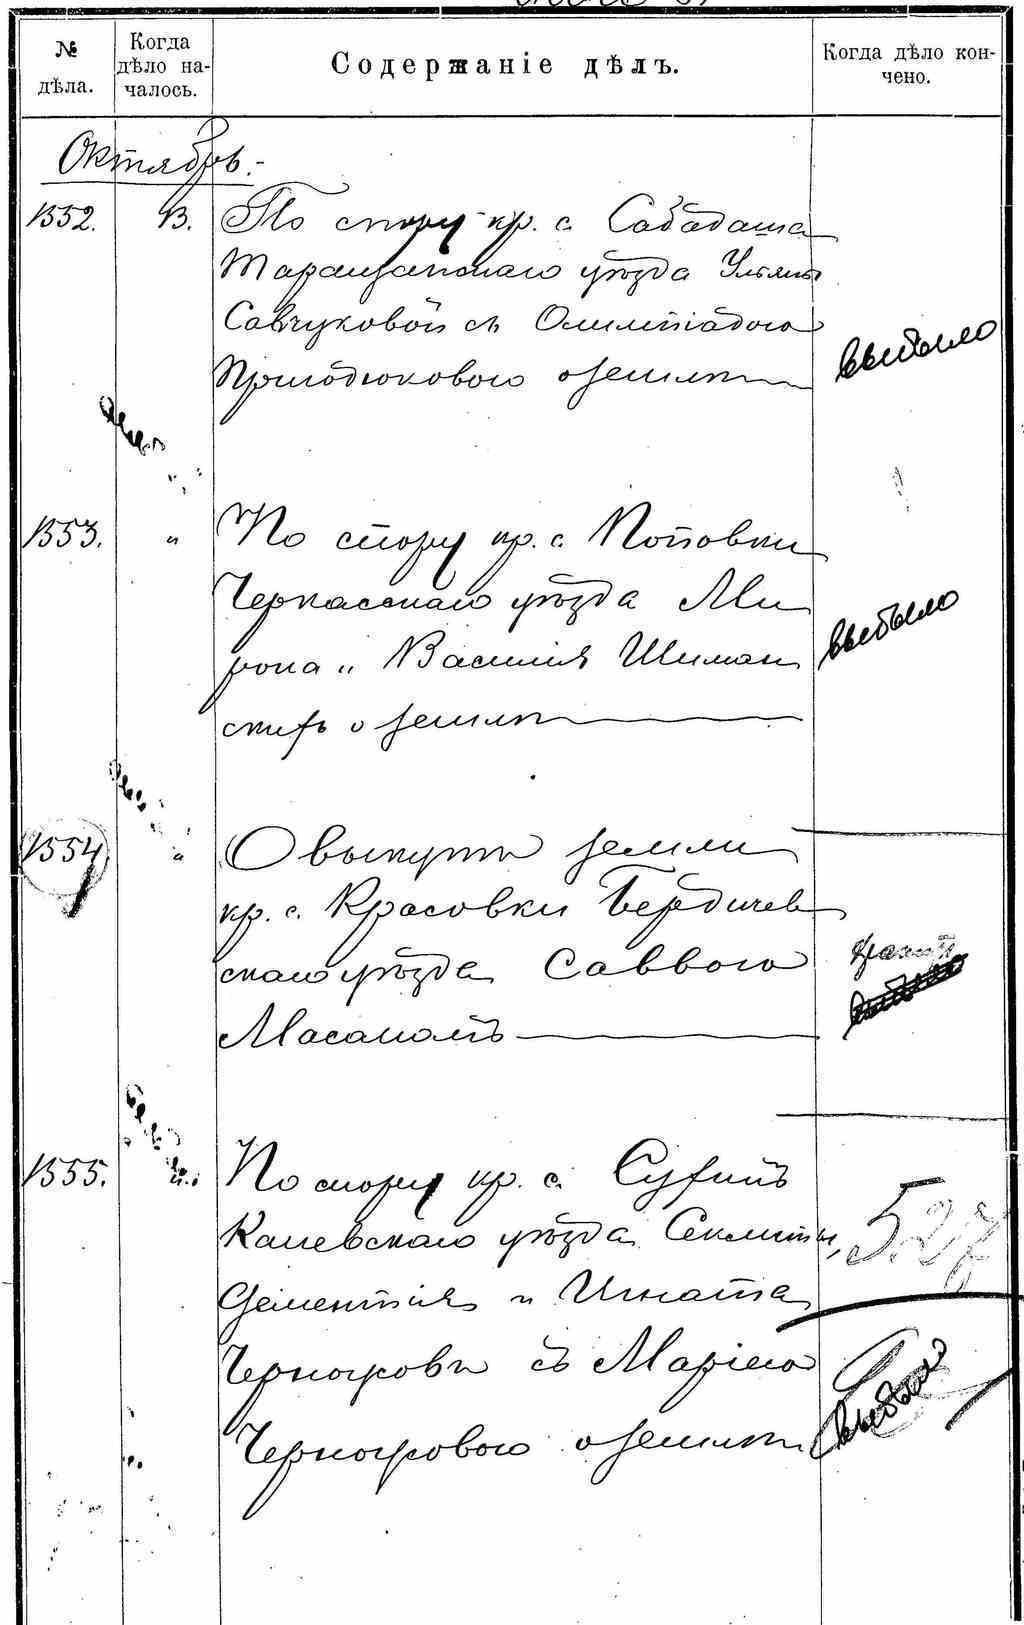 № дѣла.
Когда дѣло на-
чалось.
Содержаніе дѣлъ.
Когда дѣло кон-
чено.
Октябрь.
1552. 13. По спору кр. с. Сабадаша
Таращанскаго уѣзда Ульяны
Савчуковой съ Олимпіадою
Приходюковою о землѣ
выбыло
1553. " По спору кр. с. Поповки
Черкасскаго уѣзда Ми
рона и Василія Шиман
скихъ о землѣ
выбыло
1554 " О выкупѣ земли
кр. с. Красовки Бердичев
скаго уѣзда Саввою
Масаломъ
1555. " По спору кр. с.
Каневскаго уѣзда Секлиты,
Дементія и Игната
съ Маріею
о землѣ
527
выбыло